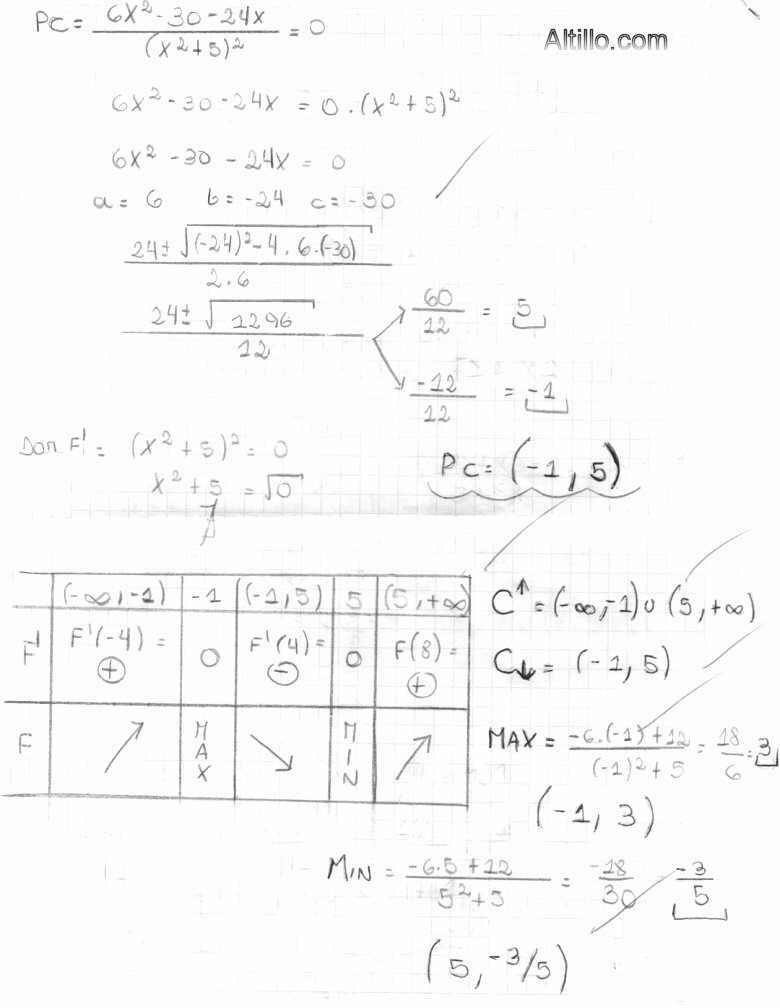 PC = (6x² - 30 - 24x) / (x² + 5)² = 0
Altillo.com
6x² - 30 - 24x = 0 . (x² + 5)²
6x² - 30 - 24x = 0
a = 6 b = -24 c = -30
(24 ± √((-24)² - 4 . 6 . (-30))) / (2 . 6)
(24 ± √1296) / 12
60/12 = 5
-12/12 = -1
Dom F' = (x² + 5)² = 0
x² + 5 = √0
PC = (-1, 5)
(-∞, -1) -1 (-1, 5) 5 (5, +∞)
F' F'(-4) = + 0 F'(4) = - 0 F(8) = +
F ↗ MAX ↘ MIN ↗
C↑ = (-∞, -1) ∪ (5, +∞)
C↓ = (-1, 5)
MAX = (-6.(-1) + 12) / ((-1)² + 5) = 18/6 = 3
(-1, 3)
MIN = (-6.5 + 12) / (5² + 5) = -18/30 -3/5
(5, -3/5)